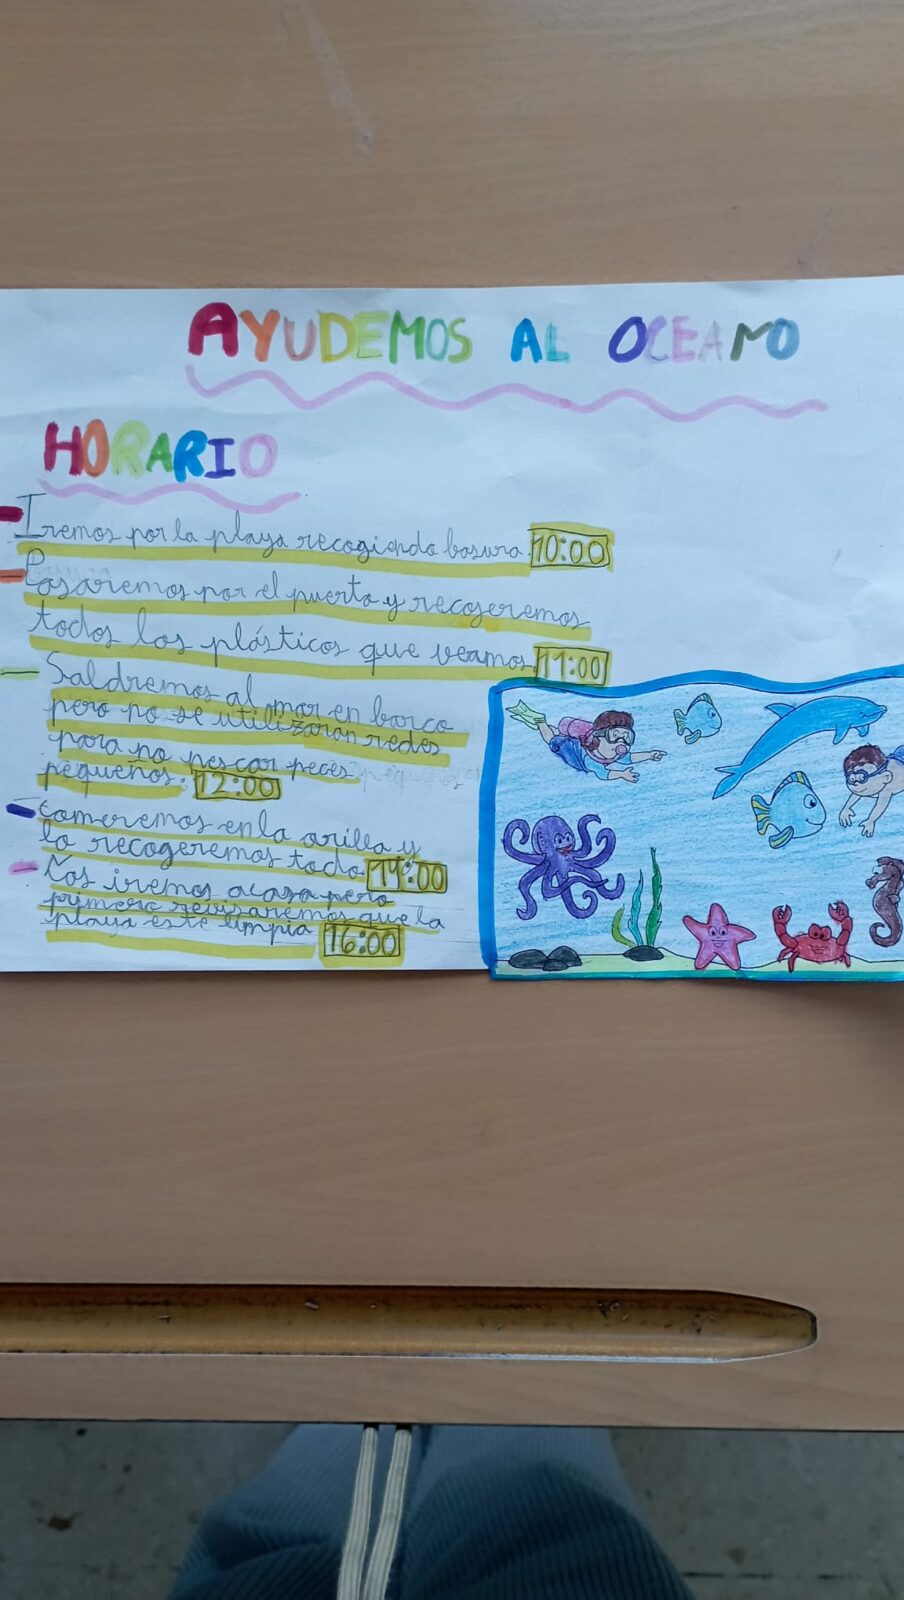 AYUDEMOS AL OCEANO
HORARIO
Iremos por la playa recogiendo basura. 10:00
Pasaremos por el puerto y recogeremos
todos los plásticos que veamos. 11:00
Saldremos al mar en barco
pero no se utilizaran redes
para no pescar peces
pequeños. 12:00
comeremos en la orilla y
lo recogeremos todo. 14:00
Nos iremos a casa pero
primero revisaremos que la
playa este limpia 16:00